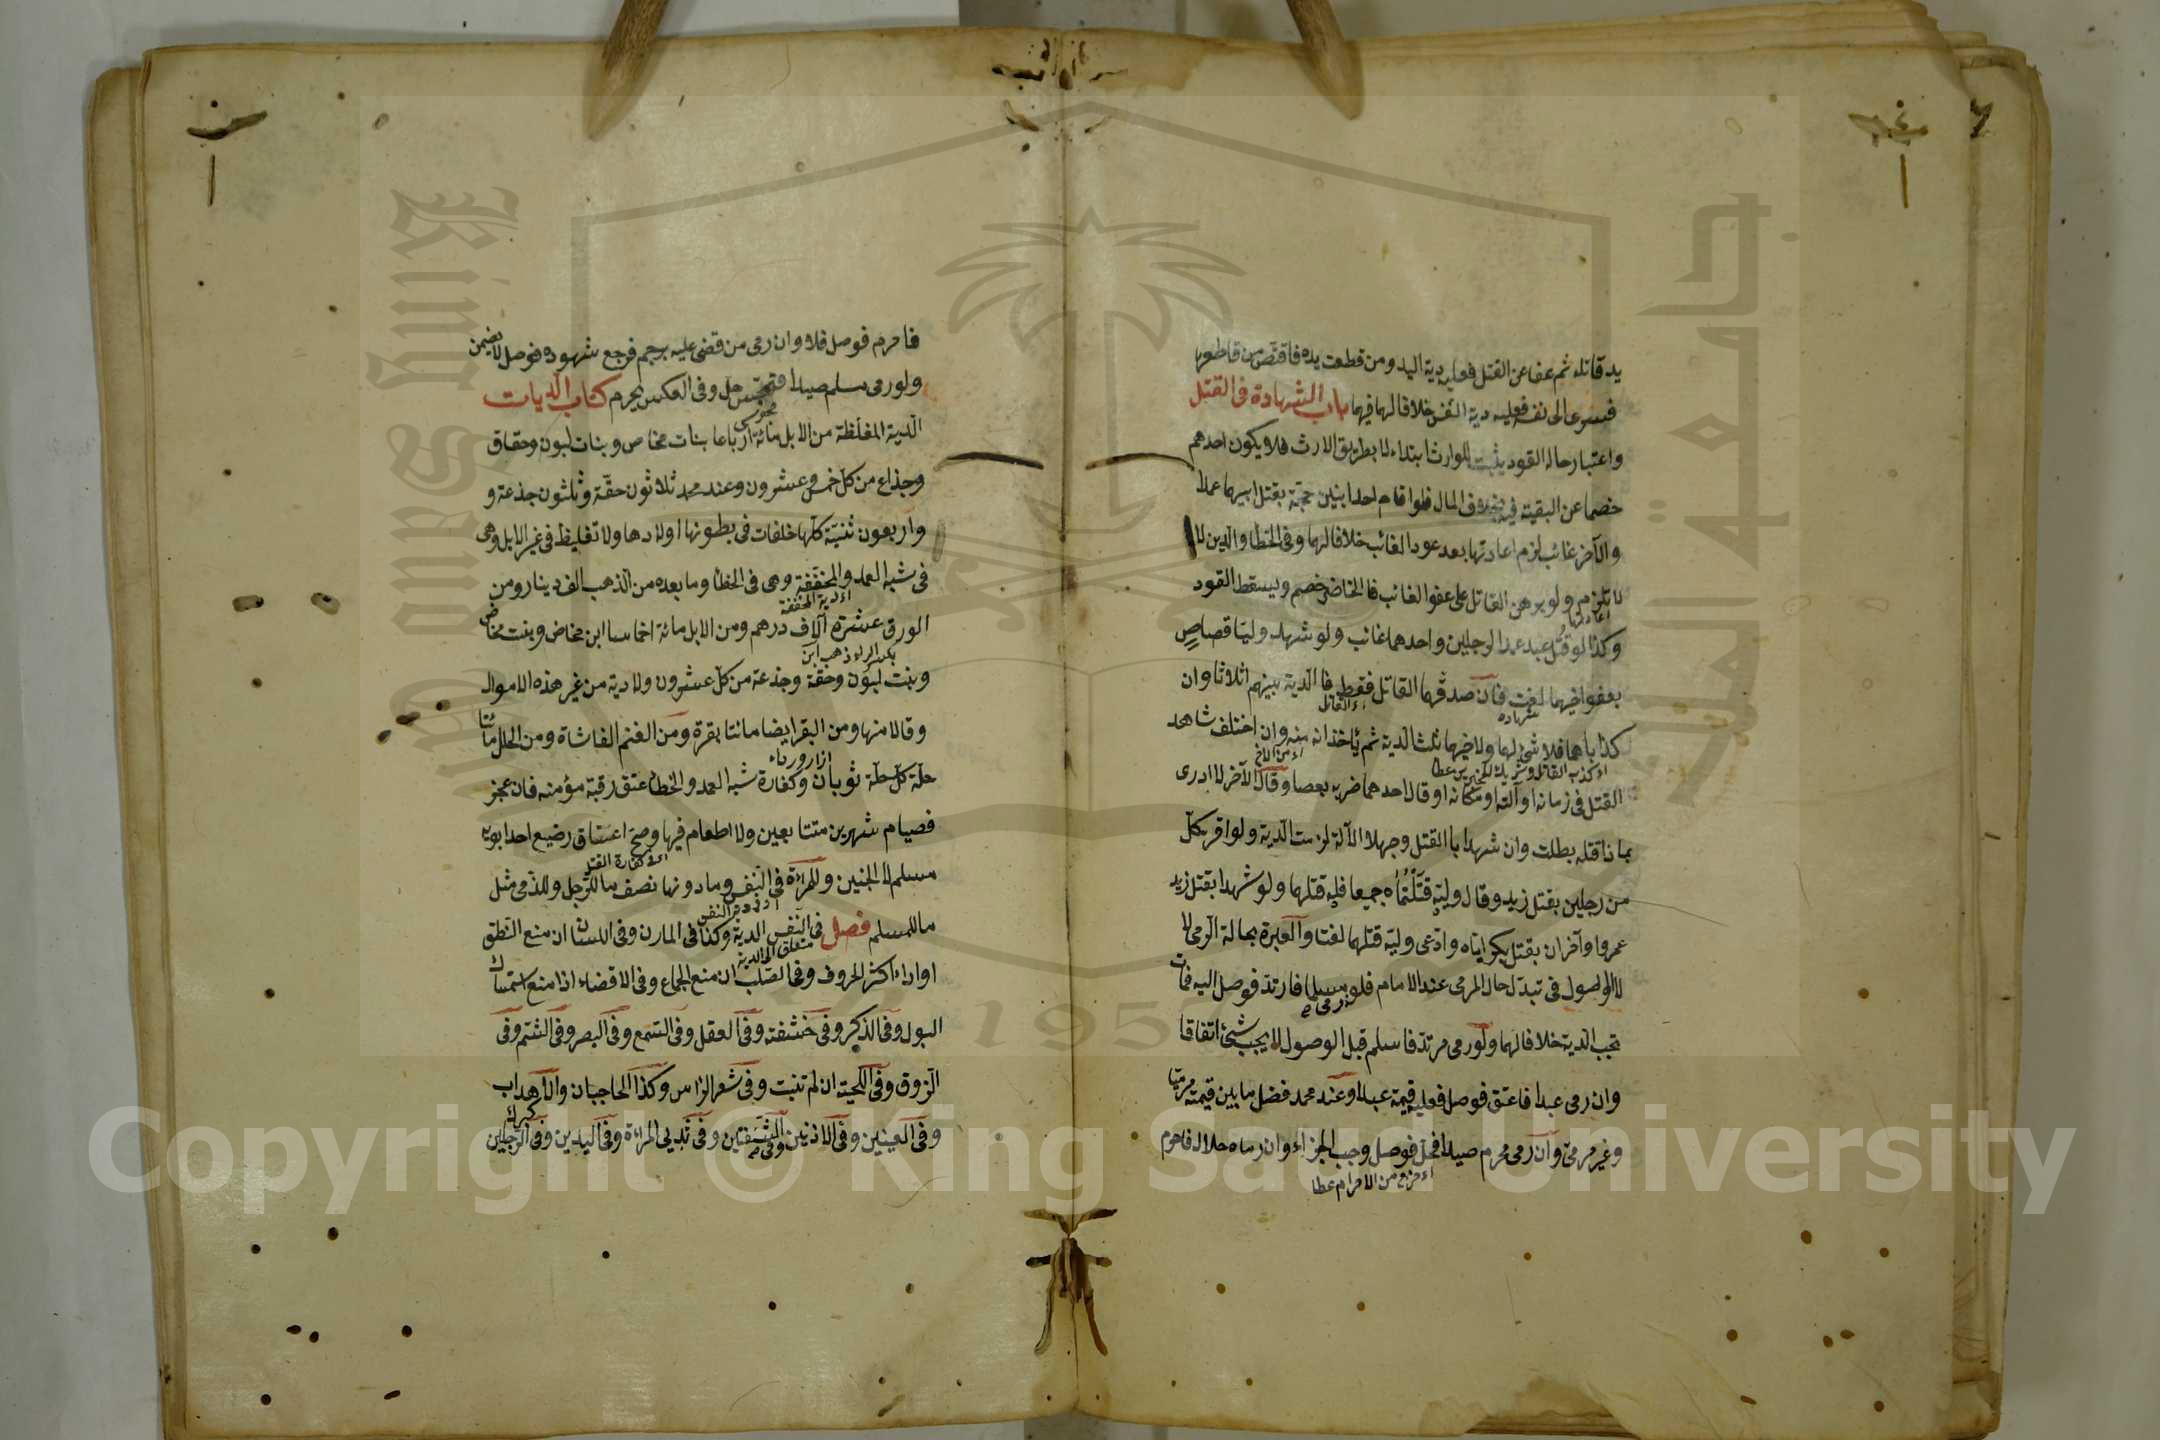 يد قاتله ثم عفا عن القتل فعليه دية اليد ومن قطعت يده فاقتص من قاطعها
فسرى الى نفسه فعليه دية النفس خلافا لهما فيهما باب الشهادة في القتل
واعتبار حاله القود يثبت للوارث ابتداء لا بطريق الارث فلا يكون احدهم
خصما عن البقية فيه بخلاف المال فلو اقام احد ابنين حجة بقتل ابيهما عمدا
والآخر غائب لزم اعادتها بعد عود الغائب خلافا لهما وفي الخطا والدين لا
لا تلزم ولو برهن القاتل على عفو الغائب فالحاضر خصم ويسقط القود
اعادتها
وكذا لو قتل عبد عمدا لرجلين واحدهما غائب ولو شهد وليا قصاص
بعفو اخيهما لغت فان صدقهما القاتل فقط فالدية بينهم اثلاثا وان
شهادة
اى القاتل
كذباهما فلا شئ لهما ولاخيهما ثلث الدية ثم ياخذانه منه وان اختلف شاهدا
اى من الاخ
القتل في زمانه او آلته او مكانه او قال احدهما ضربه بعصا وقال الآخر لا ادرى
بماذا قتله بطلت وان شهدا بالقتل وجهلا الآلة لزمت الدية ولو اقر كل
من رجلين بقتل زيد وقال وليه قتلتماه جميعا فله قتلهما ولو شهدا بقتل زيد
عمروا وآخران بقتل بكر اياه وادعى وليه قتلهما لغتا والعبرة بحالة الرمى لا
لا الوصول في تبدل حال المرمى عند الامام فلو رمى مسلما فارتد فوصل اليه فمات
تجب الدية خلافا لهما ولو رمى مرتدا فاسلم قبل الوصول لا يجب شئ اتفاقا
وان رمى عبدا فاعتق فوصل فعليه قيمته عبدا وعند محمد فضل ما بين قيمته مرميا
وغير مرمى وان رمى محرم صيدا فحل فوصل وجب الجزاء وان رماه حلال فاحرم
اى خرج من الاحرام عطا
فاحرم فوصل فلا وان رمى من قضى عليه برجم فرجع شهوده فوصل لا يضمن
ولو رمى مسلم صيدا فتمجس حل وفي العكس يحرم كتاب الديات
الدية المغلظة من الابل مائة ارباعا بنات مخاض وبنات لبون وحقاق
وجذاع من كل خمس وعشرون وعند محمد ثلاثون حقة وثلثون جذعة و
واربعون ثنية كلها خلفات في بطونها اولادها ولا تغليظ في غير الابل وهى
في شبه العمد والمخففة وهى في الخطأ وما بعده من الذهب الف دينار ومن
اى دية المخففة
الورق عشرة آلاف درهم ومن الابل مائة اخماسا ابن مخاض وبنت مخاض
وبنت لبون وحقة وجذعة من كل عشرون ولا دية من غير هذه الاموال
وقالا منها ومن البقر ايضا مائتا بقرة ومن الغنم الفا شاة ومن الحلل مائتا
ازار ورداء
حلة كل حلة ثوبان وكفارة شبه العمد والخطأ عتق رقبة مؤمنه فان عجز
فصيام شهرين متتابعين ولا اطعام فيها وصح اعتاق رضيع احد ابويه
اى في كفارة القتل
مسلم لا الجنين وللمرءة في النفس وما دونها نصف ما للرجل وللذمى مثل
ما للمسلم فصل في النفس الدية وكذا في المارن وفي اللسان ان منع النطق
او اداء اكثر الحروف وفي الصلب ان منع الجماع وفي الافضاء اذا منع استمساك
البول وفي الذكر وفي حشفته وفي العقل وفي السمع وفي البصر وفي الشم وفي
الذوق وفي اللحية ان لم تنبت وفي شعر الرأس وكذا الحاجبان والاهداب
وفي العينين وفي الاذنين وفي الشفتين وفي ثديي المرءة وفي اليدين وفي الرجلين
Copyright © King Saud University